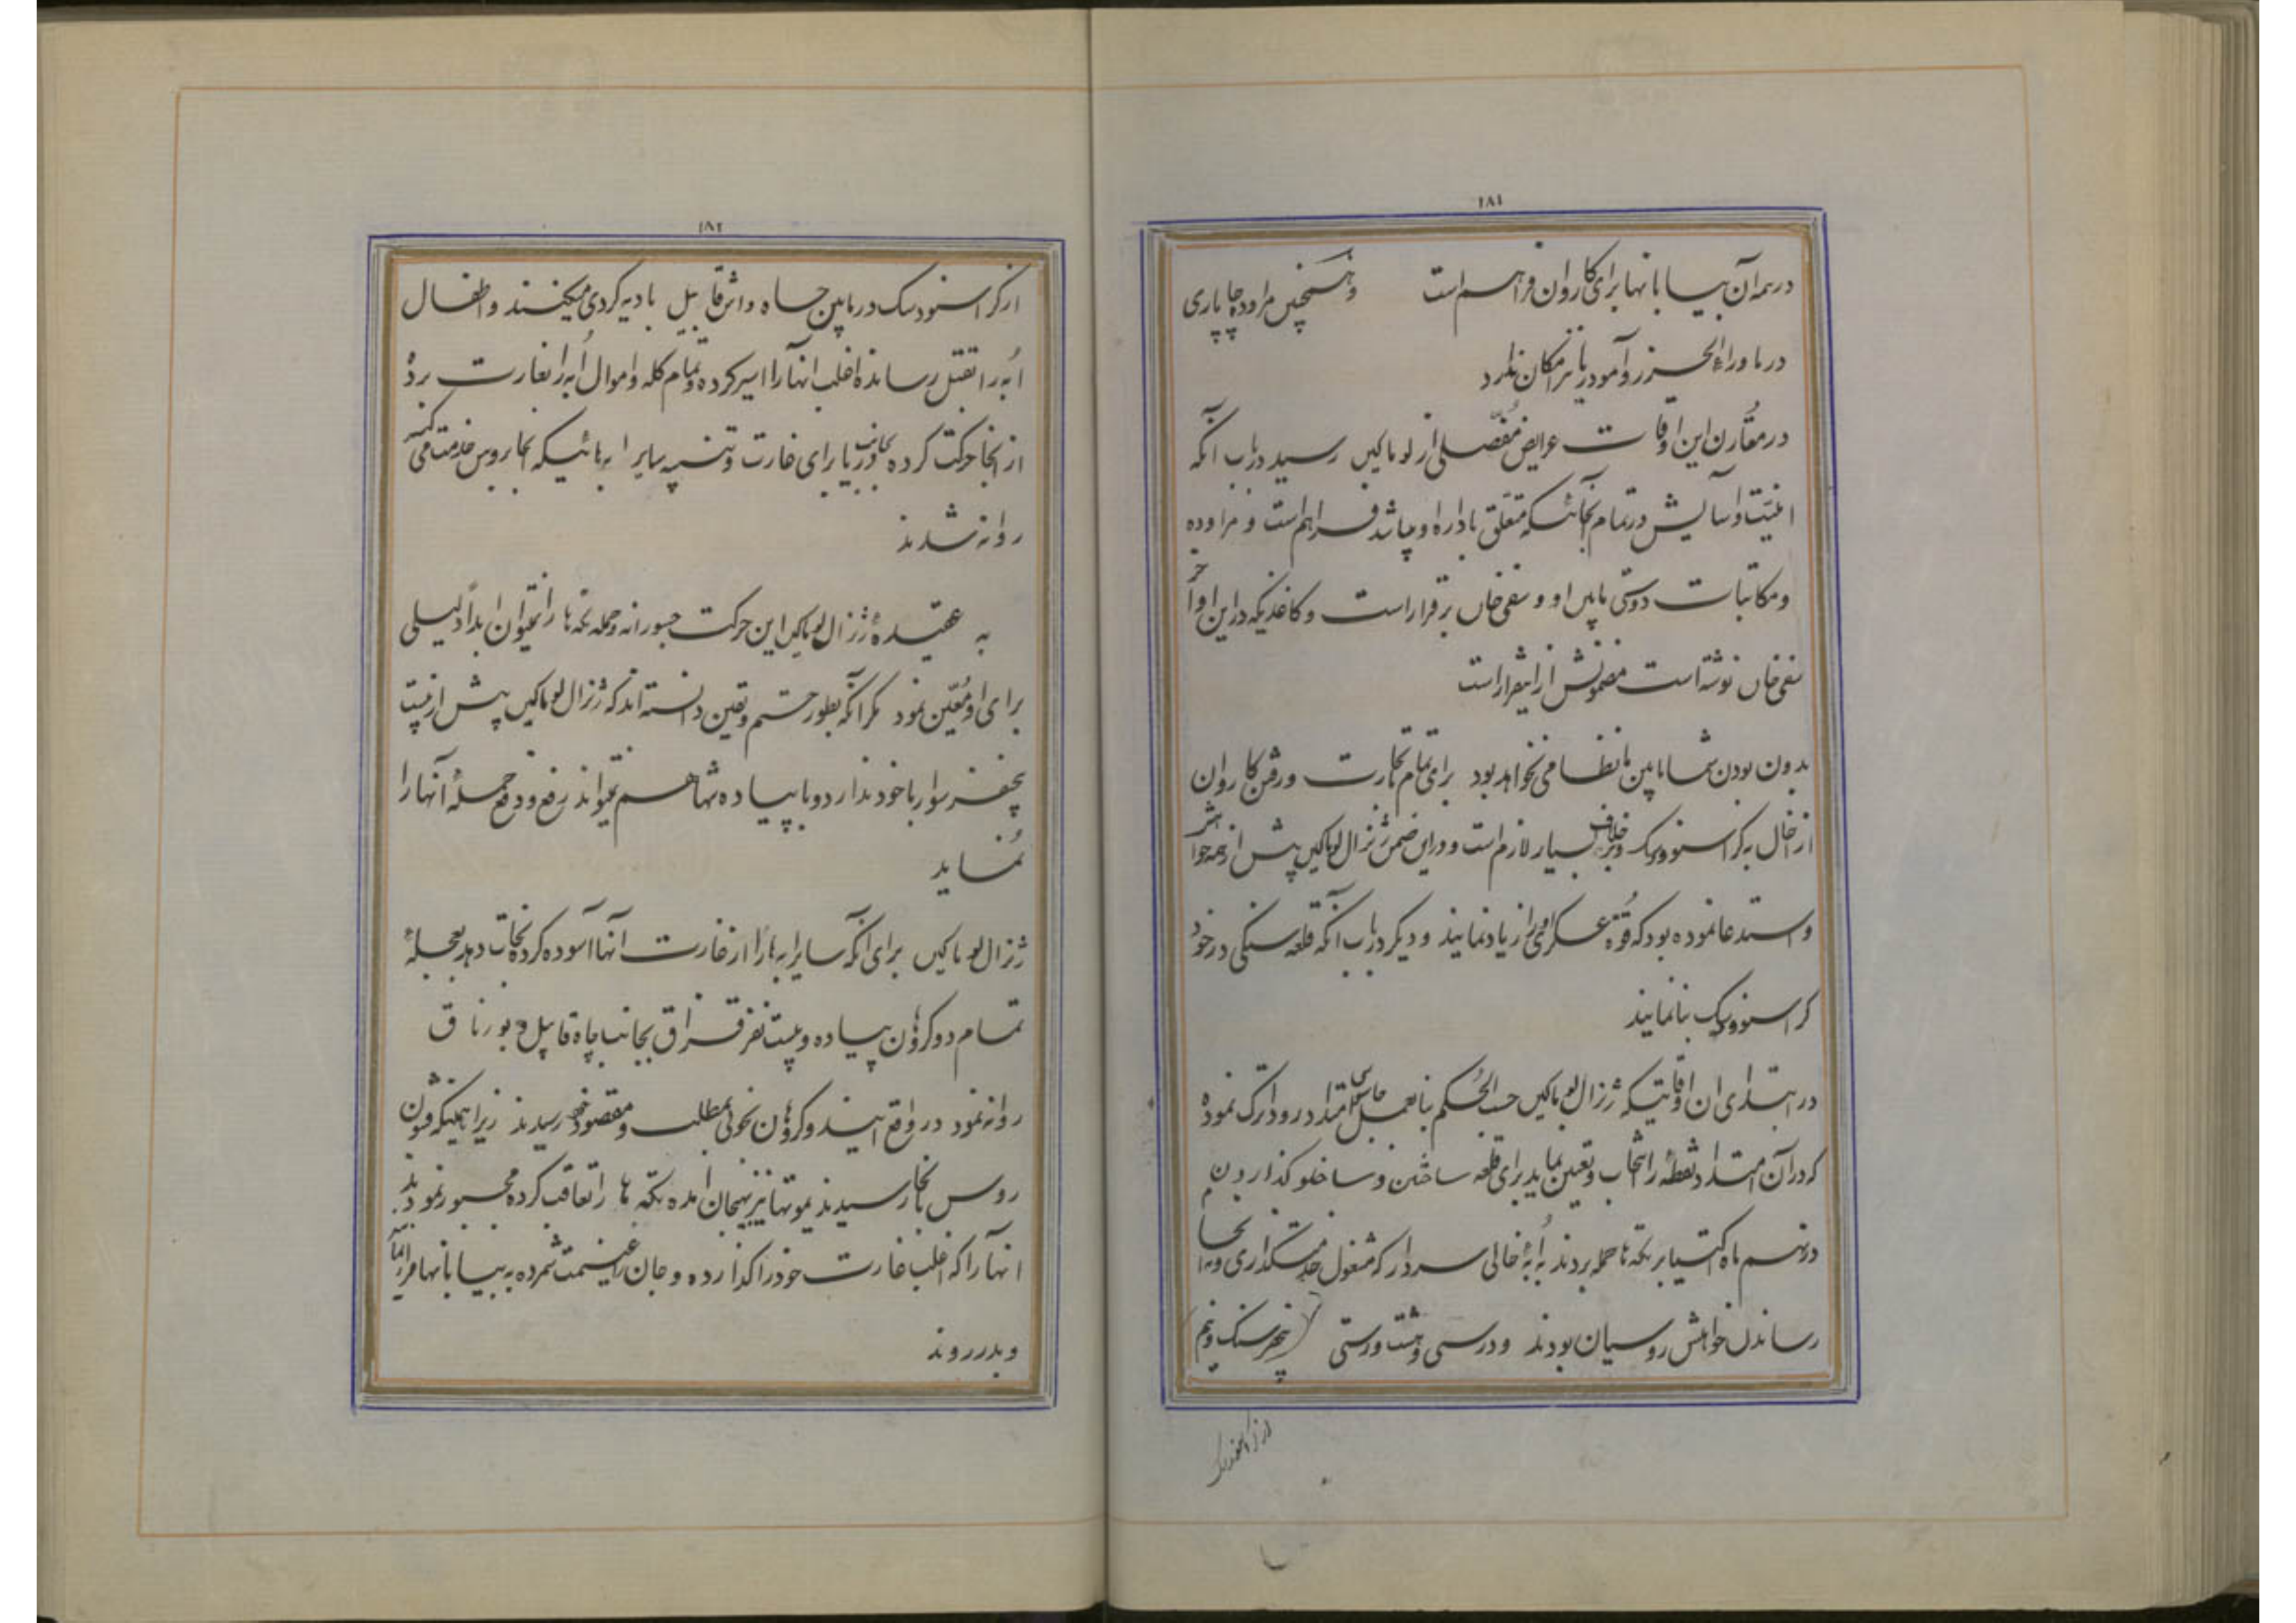 ۱۸۱
در همه آن بیابانها برای کاروان فراهم است و همچنین مراوده چاپاری
در ماوراء الخزر و آمودریا نیز امکان ندارد
در مقارن این اوقات عرایض مفصلی از لوماکین رسید در باب آنکه
امنیت و آسایش در تمام آنجائیکه متعلق باداره او میباشد فراهم است و مراوده
و مکاتبات دوستی مابین او و سفی خان برقرار است و کاغذیکه در این اواخر
سفی خان نوشته است مضمونش از اینقرار است
بدون بودن شما مابین ما نظامی نخواهد بود برای تمام تجارت و رفتن کاروان
از خال به کراسنوودسک و برخلاف بسیار لازم است و در این ضمن ژنرال لوماکین پیش از همه خواهش
و استدعا نموده بود که قوه عسکری را زیاد نمایند و دیگر در باب آنکه قلعه سنگی در خود
کراسنوودسک بنا نمایند
در ابتدای ان اوقاتیکه ژنرال لوماکین حسب الحکم بنا بعمل امتداد رود اترک نموده
که در آن امتداد نقطه را انتخاب و تعیین نماید برای قلعه ساختن و ساخلو گذاردن
در نهم ماه اکتیابر تکه ها حمله بردند به ابه خالی سردار که مشغول خدمتگذاری و بانجا
رساندن خواهش روسیان بودند و در سی و هشت ورستی (پنجفرسنگ و نیم)
۱۸۲
از کراسنودسک در مابین چاه واشرقاپیل بادیه گردی میکنند و اطفال
ابه را بقتل رسانده اغلب انها را اسیر کرده و تمام گله و اموال ابه را بغارت برده
از انجا حرکت کرده بجانب دریا برای غارت و تنبیه سایر ابه هائیکه انجا بروس خدمت می کنند
روانه شدند
به عقیده ژنرال لوماکین این حرکت جسورانه و حمله تکه ها را نمیتوان ابداً دلیلی
برای او معین نمود مگر آنکه بطور حتم و یقین دانسته اند که ژنرال لوماکین پیش از بیست
پنجنفر سوار با خود ندارد و با پیاده تنها هم نمیتواند رفع و دفع حمله آنها را
نماید
ژنرال لوماکین برای آنکه سایر ابه ها را از غارت انها آسوده کرده نجات دهد بعجله
تمام دو گروان پیاده و بیست نفر قزاق بجانب چاه قاپیل و بورناق
روانه نمود در واقع ایندو گروهان بخوبی بمطلب و مقصود خود رسیدند زیرا همینکه قشون
روس بانجا رسیدند یموتها نیز بهیجان امده تکه ها را تعاقب کرده مجبور نمودند
انها را که اغلب غارت خود را گذارده و جان را غنیمت شمرده به بیابانها فرار نمایند
و بدر روند